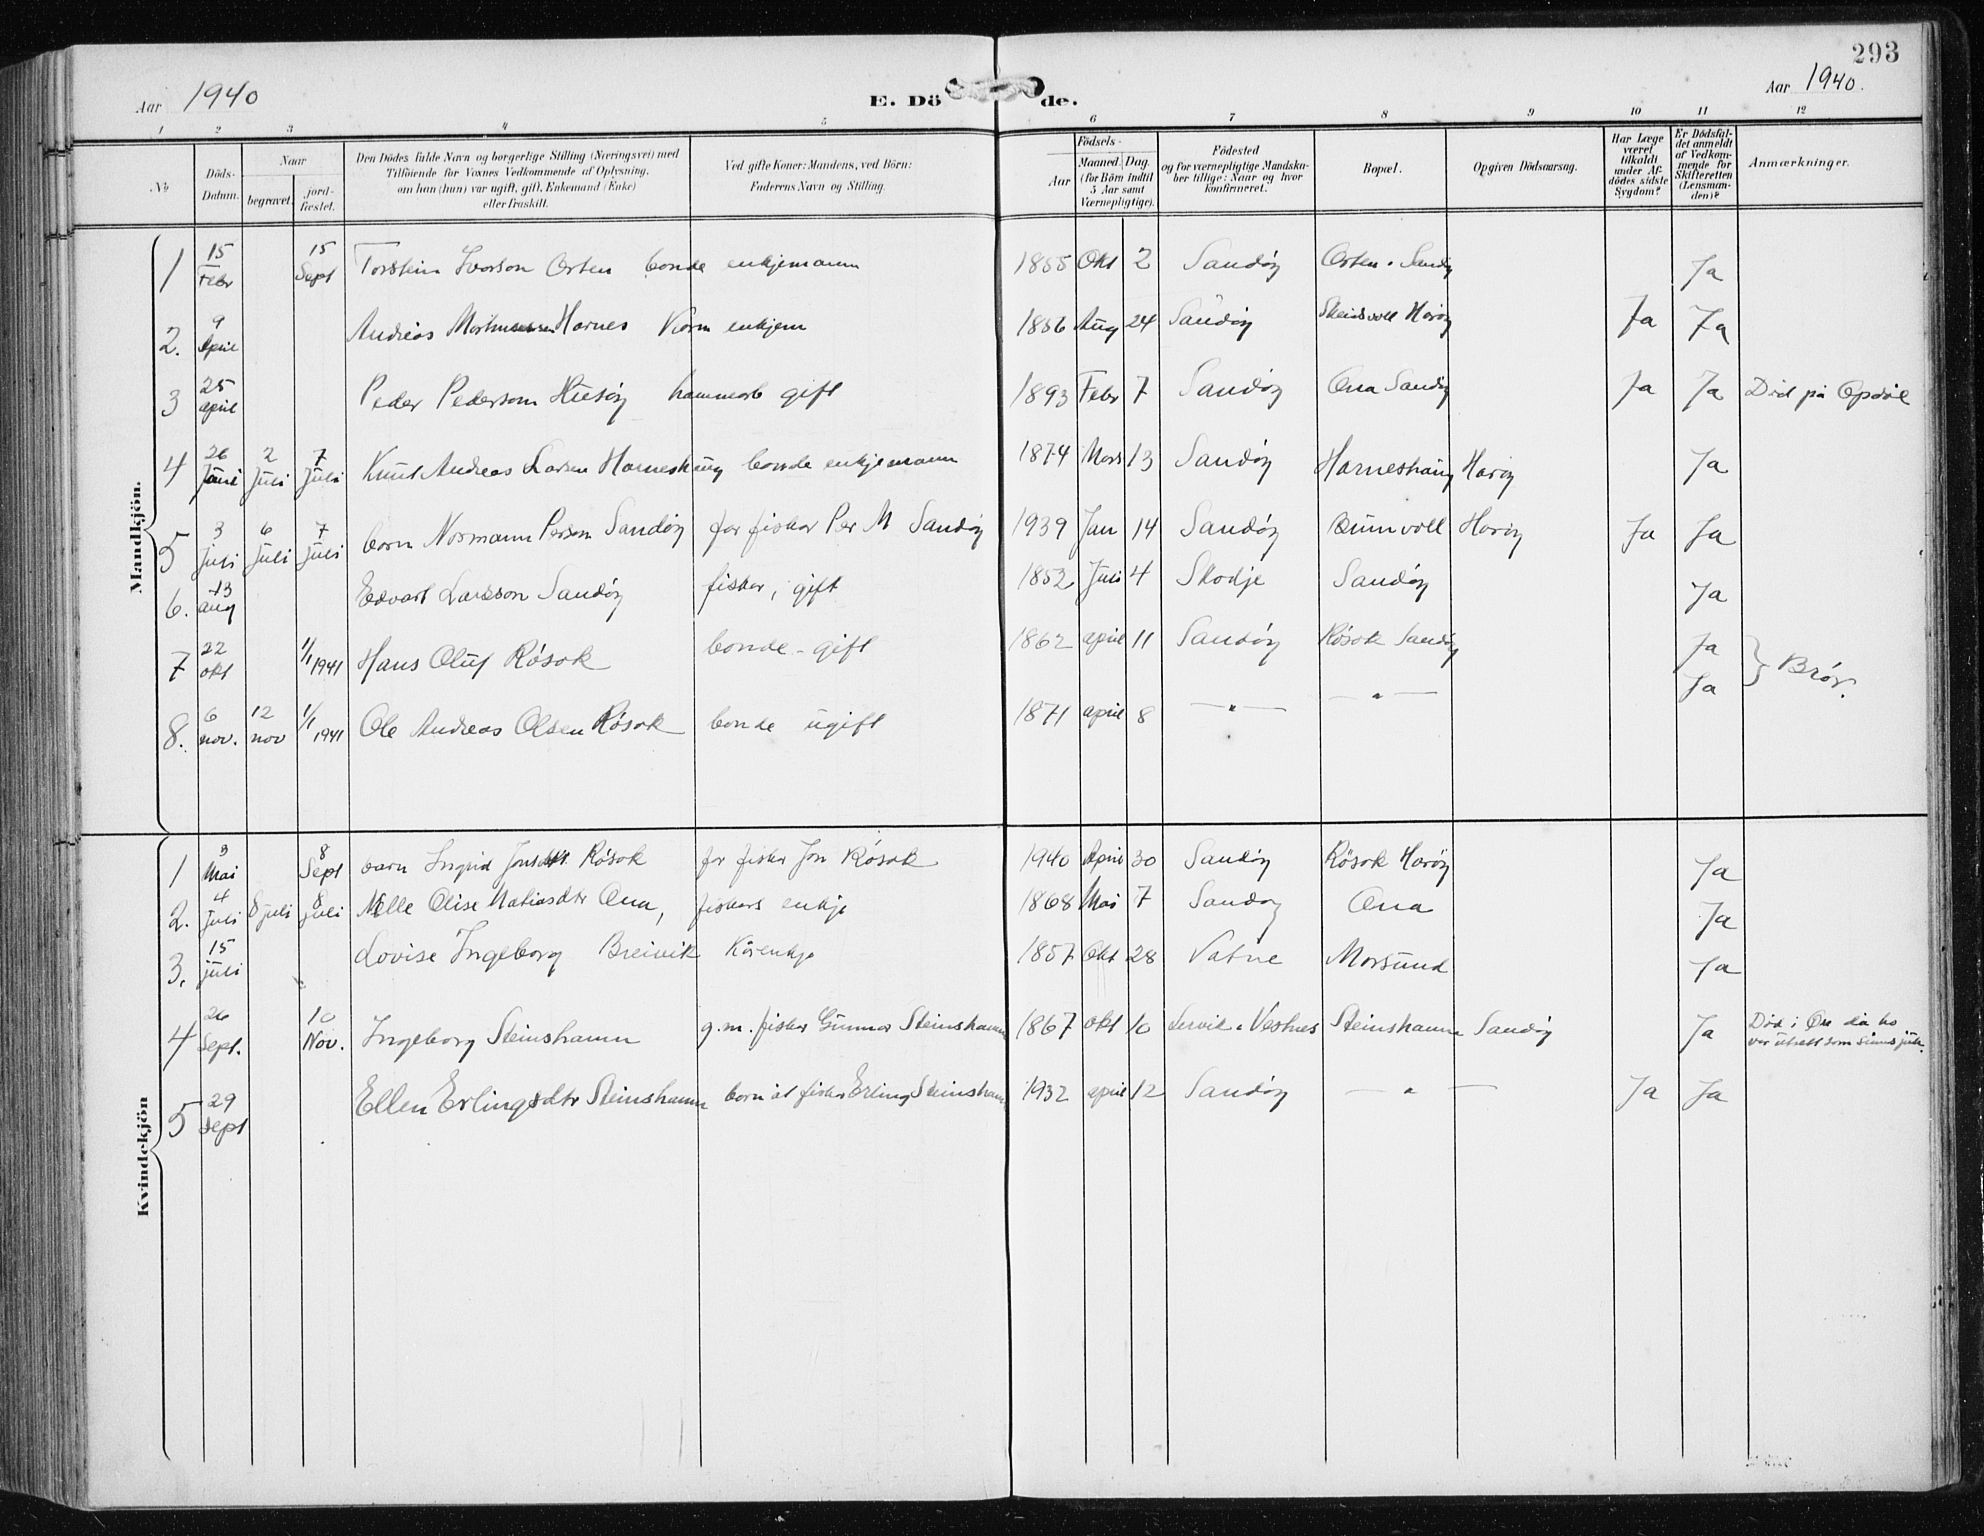 293
Aar 1940 E. Döde. Aar 1940.
1 2 3 4 5 6 7 8 9 10 11 12
No
Döds-Datum.
Naar
begravet.
jord-fæstet.
Den Dödes fulde Navn og borgerlige Stilling (Næringsvei) med
Tilföiende for Voxnes Vedkommende af Oplysning,
om han (hun) var ugift, gift, Enkemand (Enke)
eller fraskilt.
Ved gifte Koner: Mandens, ved Börn:
Faderens Navn og Stilling.
Födsels-
Aar
Maaned. Dag.
(for Börn indtil
5 Aar samt
Værnepligtige).
Födested
og for værnepligtige Mandska-
ber tillige: Naar og hvor
konfirmeret.
Bopæl.
Opgiven Dödsaarsag.
Har Læge
været
tilkaldt
under Af-
dödes sidste
Sygdom?
Er Dödsfal-
det anmeldt
af Vedkom-
mende for
Skifteretten
(Lensman-
den)?
Anmærkninger.
Mandkjön.
1 15 Febr 15 Sept Torstein Ivorson Orten bonde enkjemann 1855 Okt 2 Sandöy Orten. Sandöy Ja
2. 9 April Andreas Harnes enkjem 1856 Aug 24 Sandöy Haröy Ja Ja
3 25 april Peder Pederson Husöy gift 1893 Febr 7 Sandöy Ona Sandöy Ja Ja Död på Opdöl
4 26 Juni 2 Juli 7 Juli Knut Andreas Larsen Harneshaug bonde enkjemann 1874 Mars 13 Sandöy Harneshaug Haröy Ja
5 3 juli 6 juli 7 juli born Normann Person Sandöy far fiskar Per M Sandöy 1939 Jan 14 Sandöy Haröy Ja Ja
6. 13 aug Edvart Larsson Sandöy fiskar, gift 1852 Juli 4 Skodje Sandöy Ja
7 22 okt 1/1 1941 Hans Oluf Rösok bonde - gift 1862 april 11 Sandöy Rösok Sandöy Ja } Brör.
8. 6 nov. 12 nov 1/1 1941 Ole Andreas Olsen Rösok bonde ugift 1871 april 8 — " — — " — Ja
Kvindekjön
1 3 Mai 8 Sept Ingrid Jonsdtr. Rösok far fiskar Jon Rösok 1940 April 30 Sandöy Rösok Haröy Ja
2. 4 Juli 8 juli 8 juli Nelle Olise Matiasdtr Ona, fiskars enkje 1868 Mai 7 Sandoy Ona Ja
3. 15 juli Lovise Ingeborg Breivik Kårenkje 1857 Okt 28 Vatne Morsund Ja
4 26 Sept. 10 Nov. Ingeborg Steinshamn g.m. fiskar Gunnar Steinshamn 1867 okt 10 Vestnes Steinshamn Sandöy Ja Död i da ho
var som
5 29 Sept Ellen Erlingsdtr Steinshamn born åt fiskar Erling Steinshamn 1932 april 12 Sandöy — " — Ja Ja